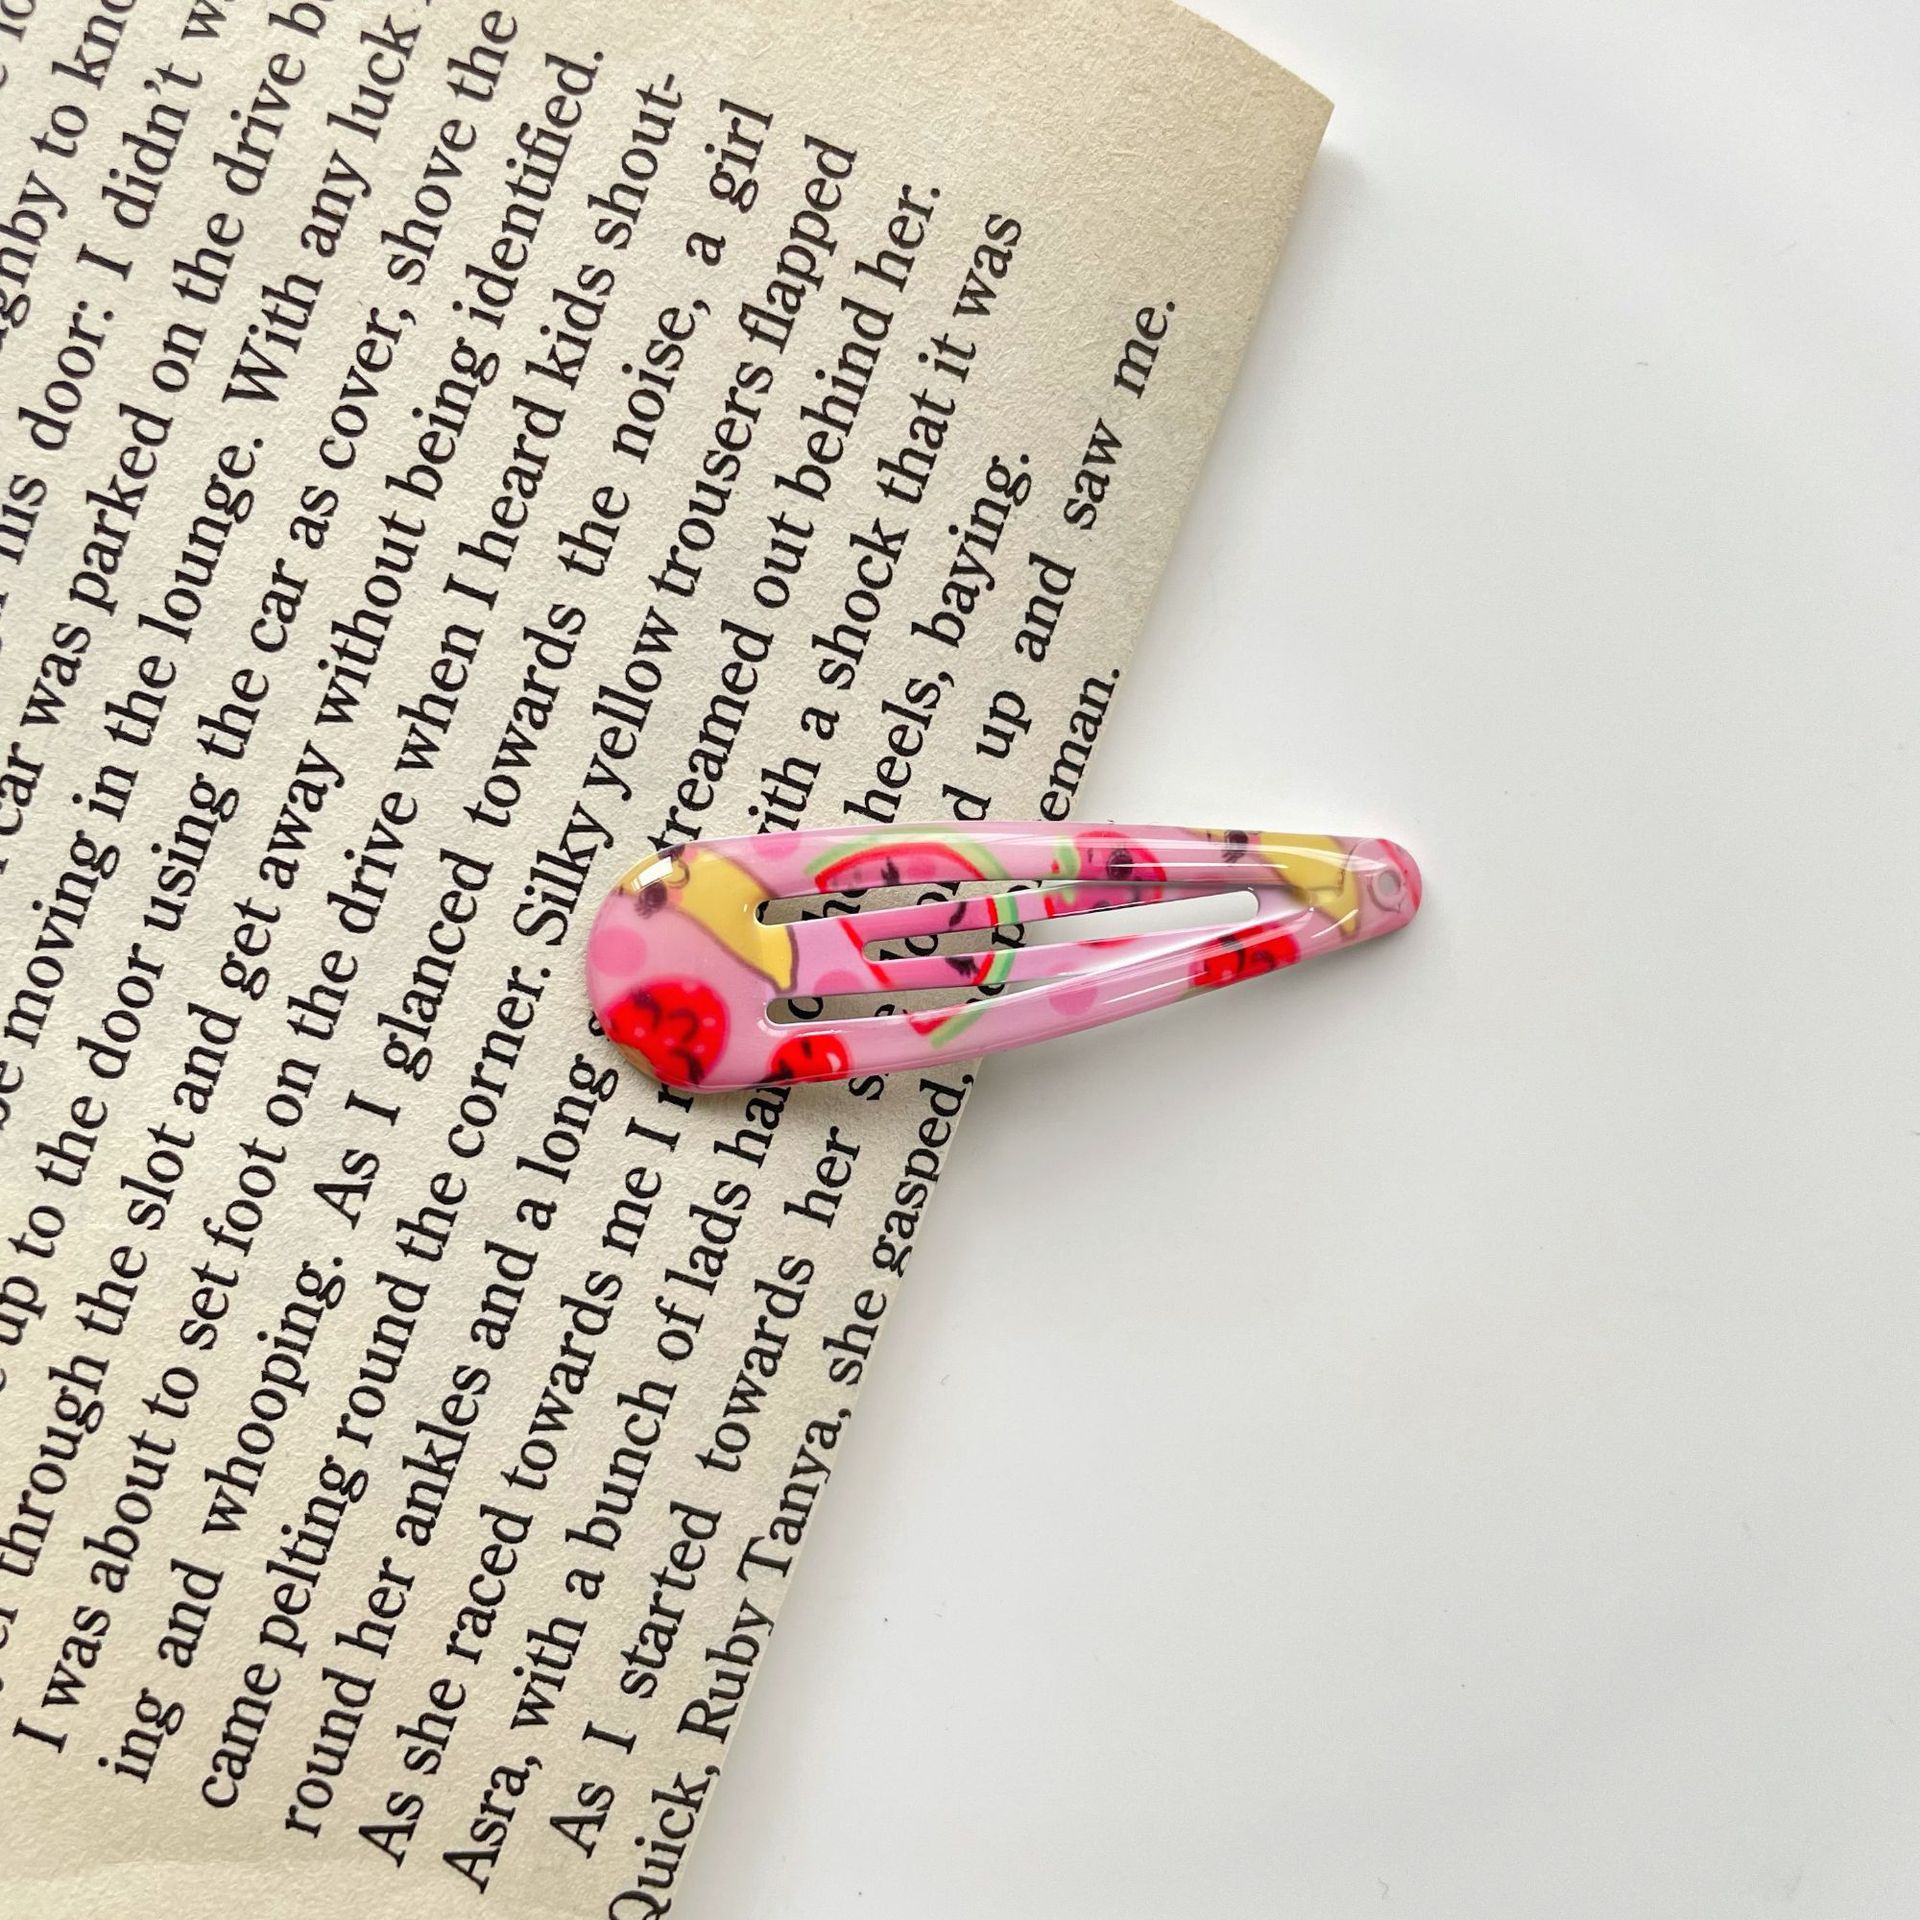 to
his door: I didn't
car was parked on the drive
be moving in the lounge. With any luck
up to the door using the car as cover, shove the
through the slot and get away without being identified.
I was about to set foot on the drive when I heard kids shout-
ing and whooping. As I glanced towards the noise, a girl
came pelting round the corner. Silky yellow trousers flapped
round her ankles and a long streamed out behind her.
As she raced towards me I with a shock that it was
Asra, with a bunch of lads heels, baying.
As I started towards her up and saw me.
Quick, Ruby Tanya, she gasped,